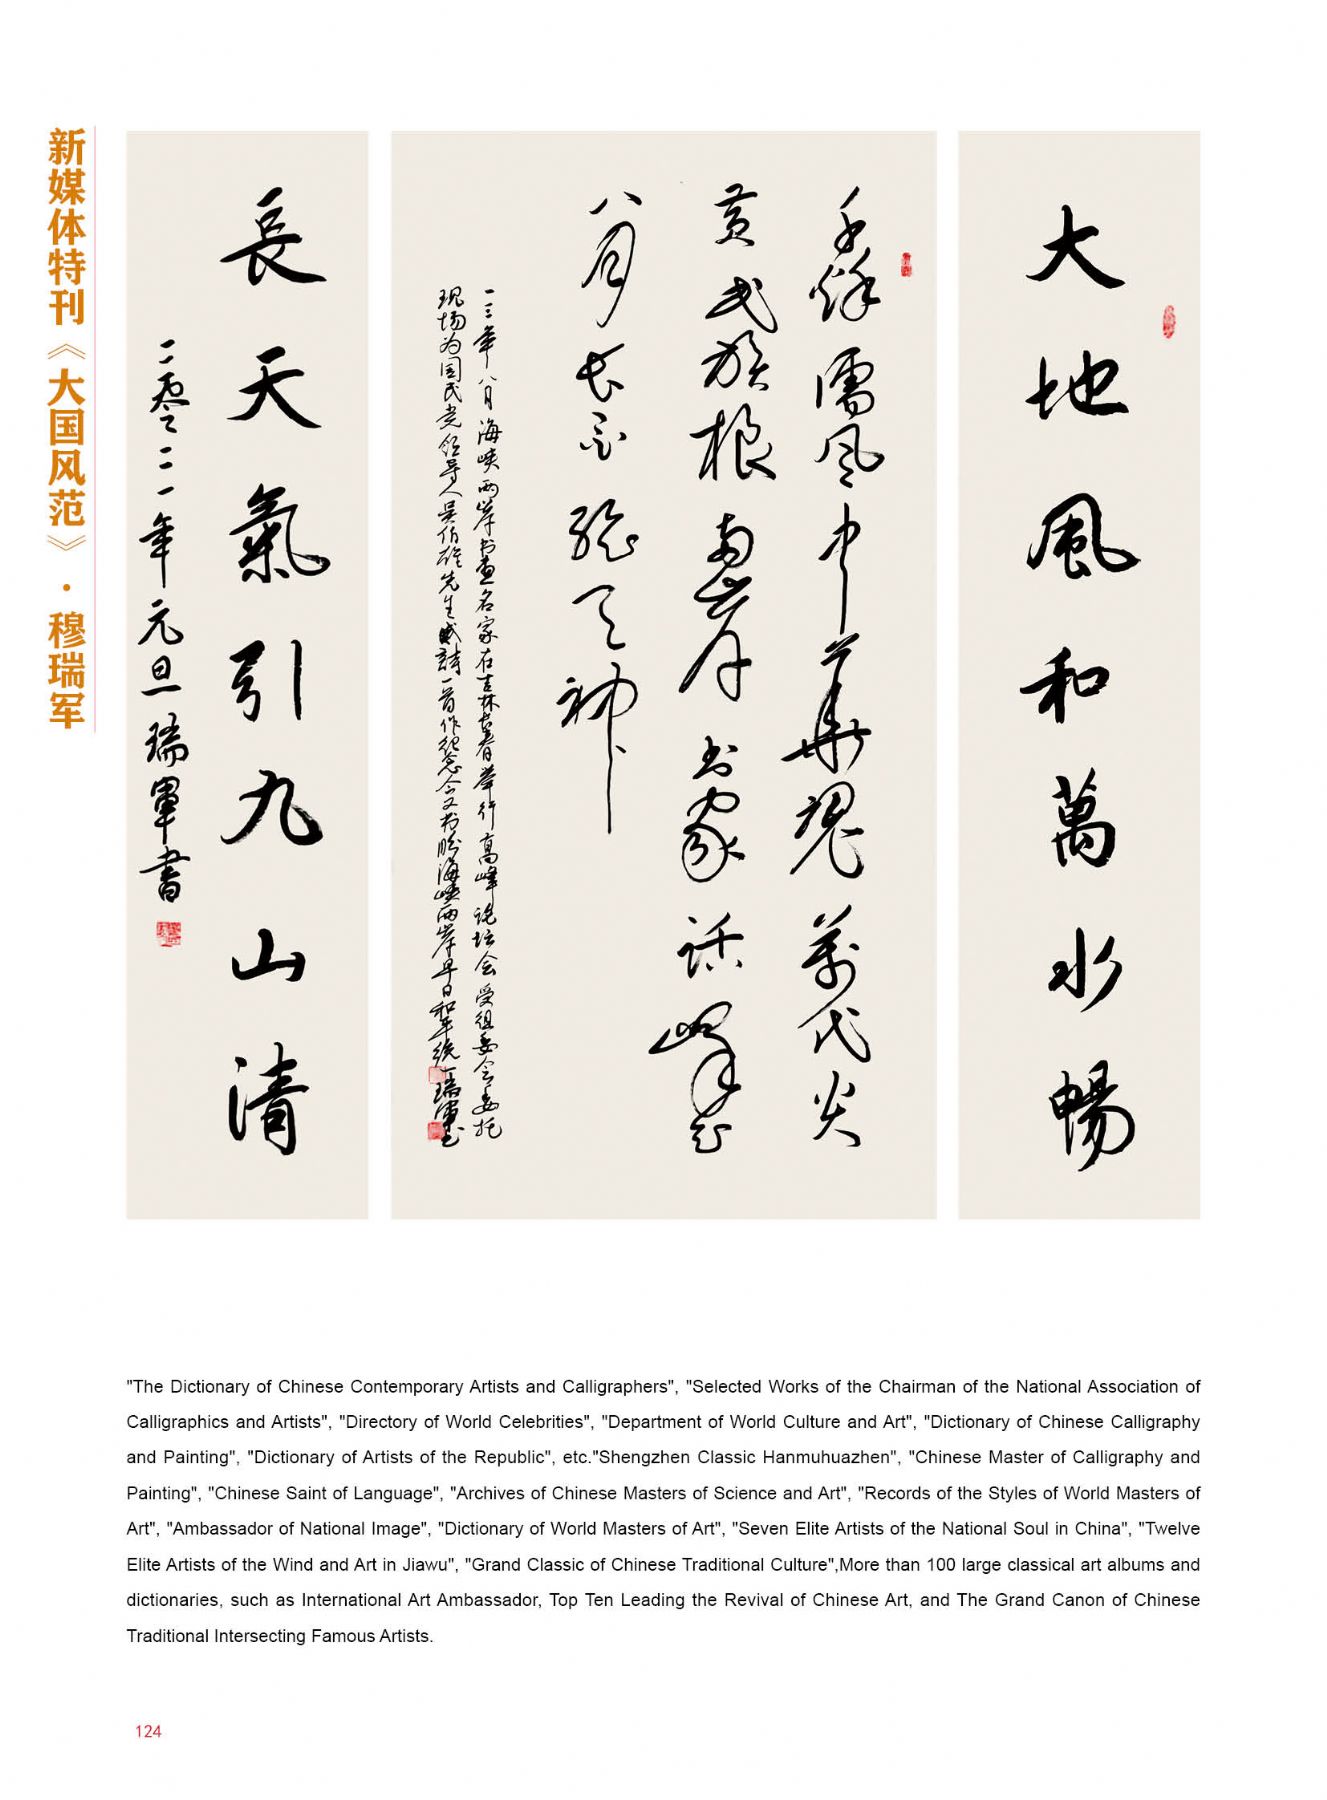 新媒体特刊《大国风范》·穆瑞军
大地風和萬水暢
千條儒风中華魂萬代炎
黄民族根两岸书家話峰起
八月长春聚天神
一三年八月海峡两岸书画名家在吉林长春举行高峰论坛会受组委会委托
现场为国民党领导人吴伯雄先生赋詩一首作纪念今又书盼海峡两岸早日和平统一瑞军书
長天氣引九山清
二零二一年元旦瑞軍書
"The Dictionary of Chinese Contemporary Artists and Calligraphers", "Selected Works of the Chairman of the National Association of
Calligraphics and Artists", "Directory of World Celebrities", "Department of World Culture and Art", "Dictionary of Chinese Calligraphy
and Painting", "Dictionary of Artists of the Republic", etc."Shengzhen Classic Hanmuhuazhen", "Chinese Master of Calligraphy and
Painting", "Chinese Saint of Language", "Archives of Chinese Masters of Science and Art", "Records of the Styles of World Masters of
Art", "Ambassador of National Image", "Dictionary of World Masters of Art", "Seven Elite Artists of the National Soul in China", "Twelve
Elite Artists of the Wind and Art in Jiawu", "Grand Classic of Chinese Traditional Culture",More than 100 large classical art albums and
dictionaries, such as International Art Ambassador, Top Ten Leading the Revival of Chinese Art, and The Grand Canon of Chinese
Traditional Intersecting Famous Artists.
124